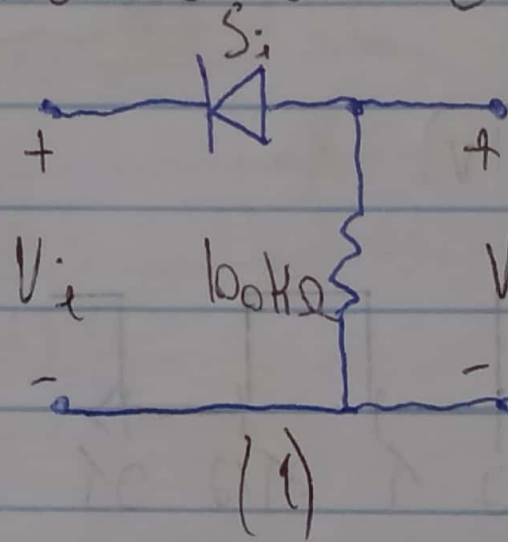 Si
+ +
Vi 100KΩ V
- -
(1)